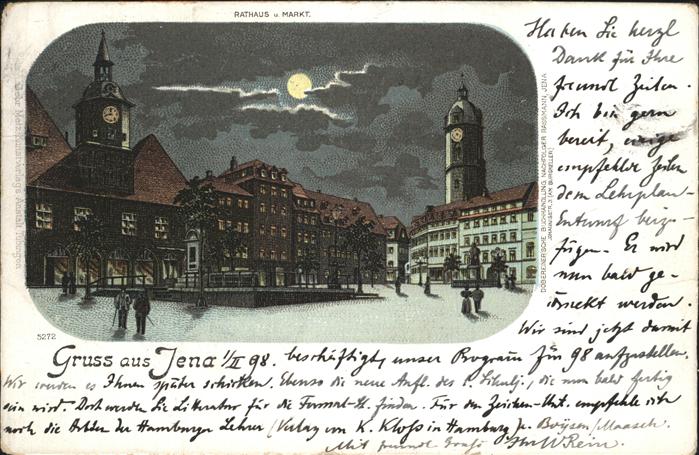 RATHAUS u. MARKT.
Haben Sie herzl
Dank für Ihre
freundl Zeilen.
Ich bin gern
bereit, einige
empfehlde Zeilen
dem Lehrplan-
Entwurf beizu-
fügen. Er wird
nun bald ge-
druckt werden.
Wir sind jetzt damit
DOBEREINERSCHE BUCHHANDLUNG NACHFOLGER RASSMANN, JENA
JOHANNISSTR.
Anstalt Tübingen
5272
Gruss aus Jena 1/II 98. beschäftigt, unser Program für 98 aufzustellen.
Wir werden es Ihnen später schicken. Ebenso die neue Aufl. des I. Schulj., die nun bald fertig
sein wird. Dort werden Sie Litteratur für die finden. Für den Zeichen-Unt. empfehle ich
noch die Arbten der Hamburger Lehrer (Verlag von K. Kloss in Hamburg) Boÿsen/Maasch.
Mit freundl Gruß Ihr WRein.